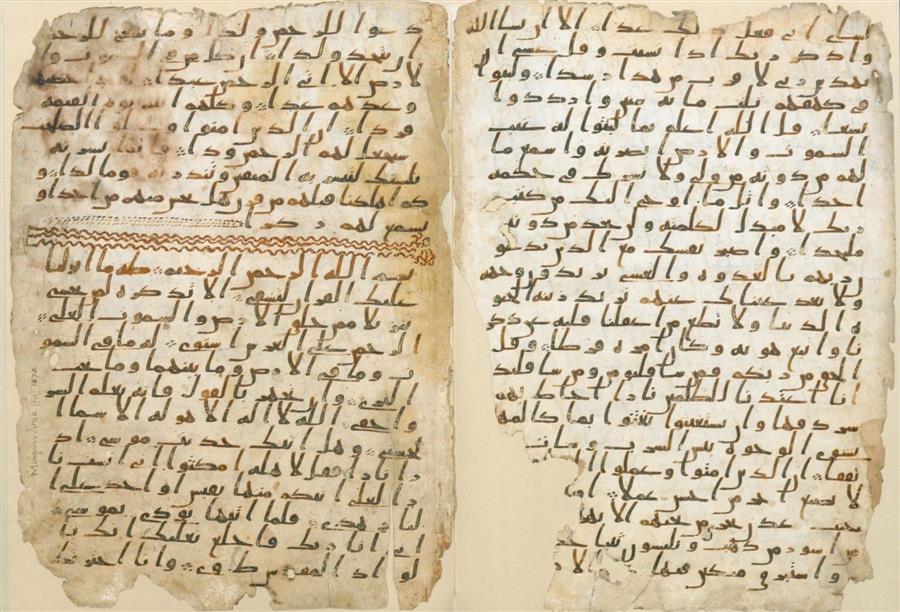 لشاي اني فعل ذلك غدا الا ان يشا الله
واذكر ربك اذا نسيت وقل عسى ان
يهدين ربي لاقرب من هذا رشدا ولبثوا
في كهفهم ثلث مائة سنين وازدادوا
تسعا قل الله اعلم بما لبثوا له غيب
السموت والارض ابصر به واسمع ما
لهم من دونه من ولي ولا يشرك في حكمه
احدا واتل ما اوحي اليك من كتب
ربك لا مبدل لكلمته ولن تجد من دونه
ملتحدا واصبر نفسك مع الذين يدعون
ربهم بالغدوة والعشي يريدون وجهه
ولا تعد عيناك عنهم تريد زينة الحيو
ة الدنيا ولا تطع من اغفلنا قلبه عن ذكر
نا واتبع هويه وكان امره فرطا وقل
الحق من ربكم فمن شا فليومن ومن شا فليكفر
انا اعتدنا للظلمين نارا احاط بهم
سردقها وان يستغيثوا يغثوا بما كالمهل
يشوي الوجوه بئس الشرب وسات
مرتفقا ان الذين امنوا وعملوا
لا نضيع اجر من احسن عملا
جنت عدن تجري من تحتهم الانهر
من اسور من ذهب ويلبسون ثيبا
واستبرق متكين فيها
دعوا للرحمن ولدا وما ينبغي للرحمن
ان يتخذ ولدا ان كل من في السموت وا
لارض الا اتي الرحمن عبدا لقد احصيهم
وعدهم عدا وكلهم اتيه يوم القيمة
فردا ان الذين امنوا وعملوا الصلحت
سيجعل لهم الرحمن ودا فانما يسرنه
بلسنك لتبشر به المتقين وتنذر به قوما لدا و
كم اهلكنا قبلهم من قرن هل تحس منهم من احد او
تسمع لهم ركزا
بسم الله الرحمن الرحيم طه ما انزلنا
عليك القران لتشقى الا تذكره لمن يخشى
تنزيلا ممن خلق الارض والسموت العلى
الرحمن على العرش استوى له ما في السمو
ت وما في الارض وما بينهما وما تحت
الثرى وان تجهر بالقول فانه يعلم السر
واخفى الله لا اله الا هو له الاسما ا
لحسنى وهل اتيك حديث موسى اذ
را نارا فقال لاهله امكثوا اني انست نا
را لعلي اتيكم منها بقبس او اجد على ا
لنار هدى فلما اتيها نودي يموسى
اني انا ربك فاخلع نعليك انك با
لواد المقدس طوى وانا اخترتك